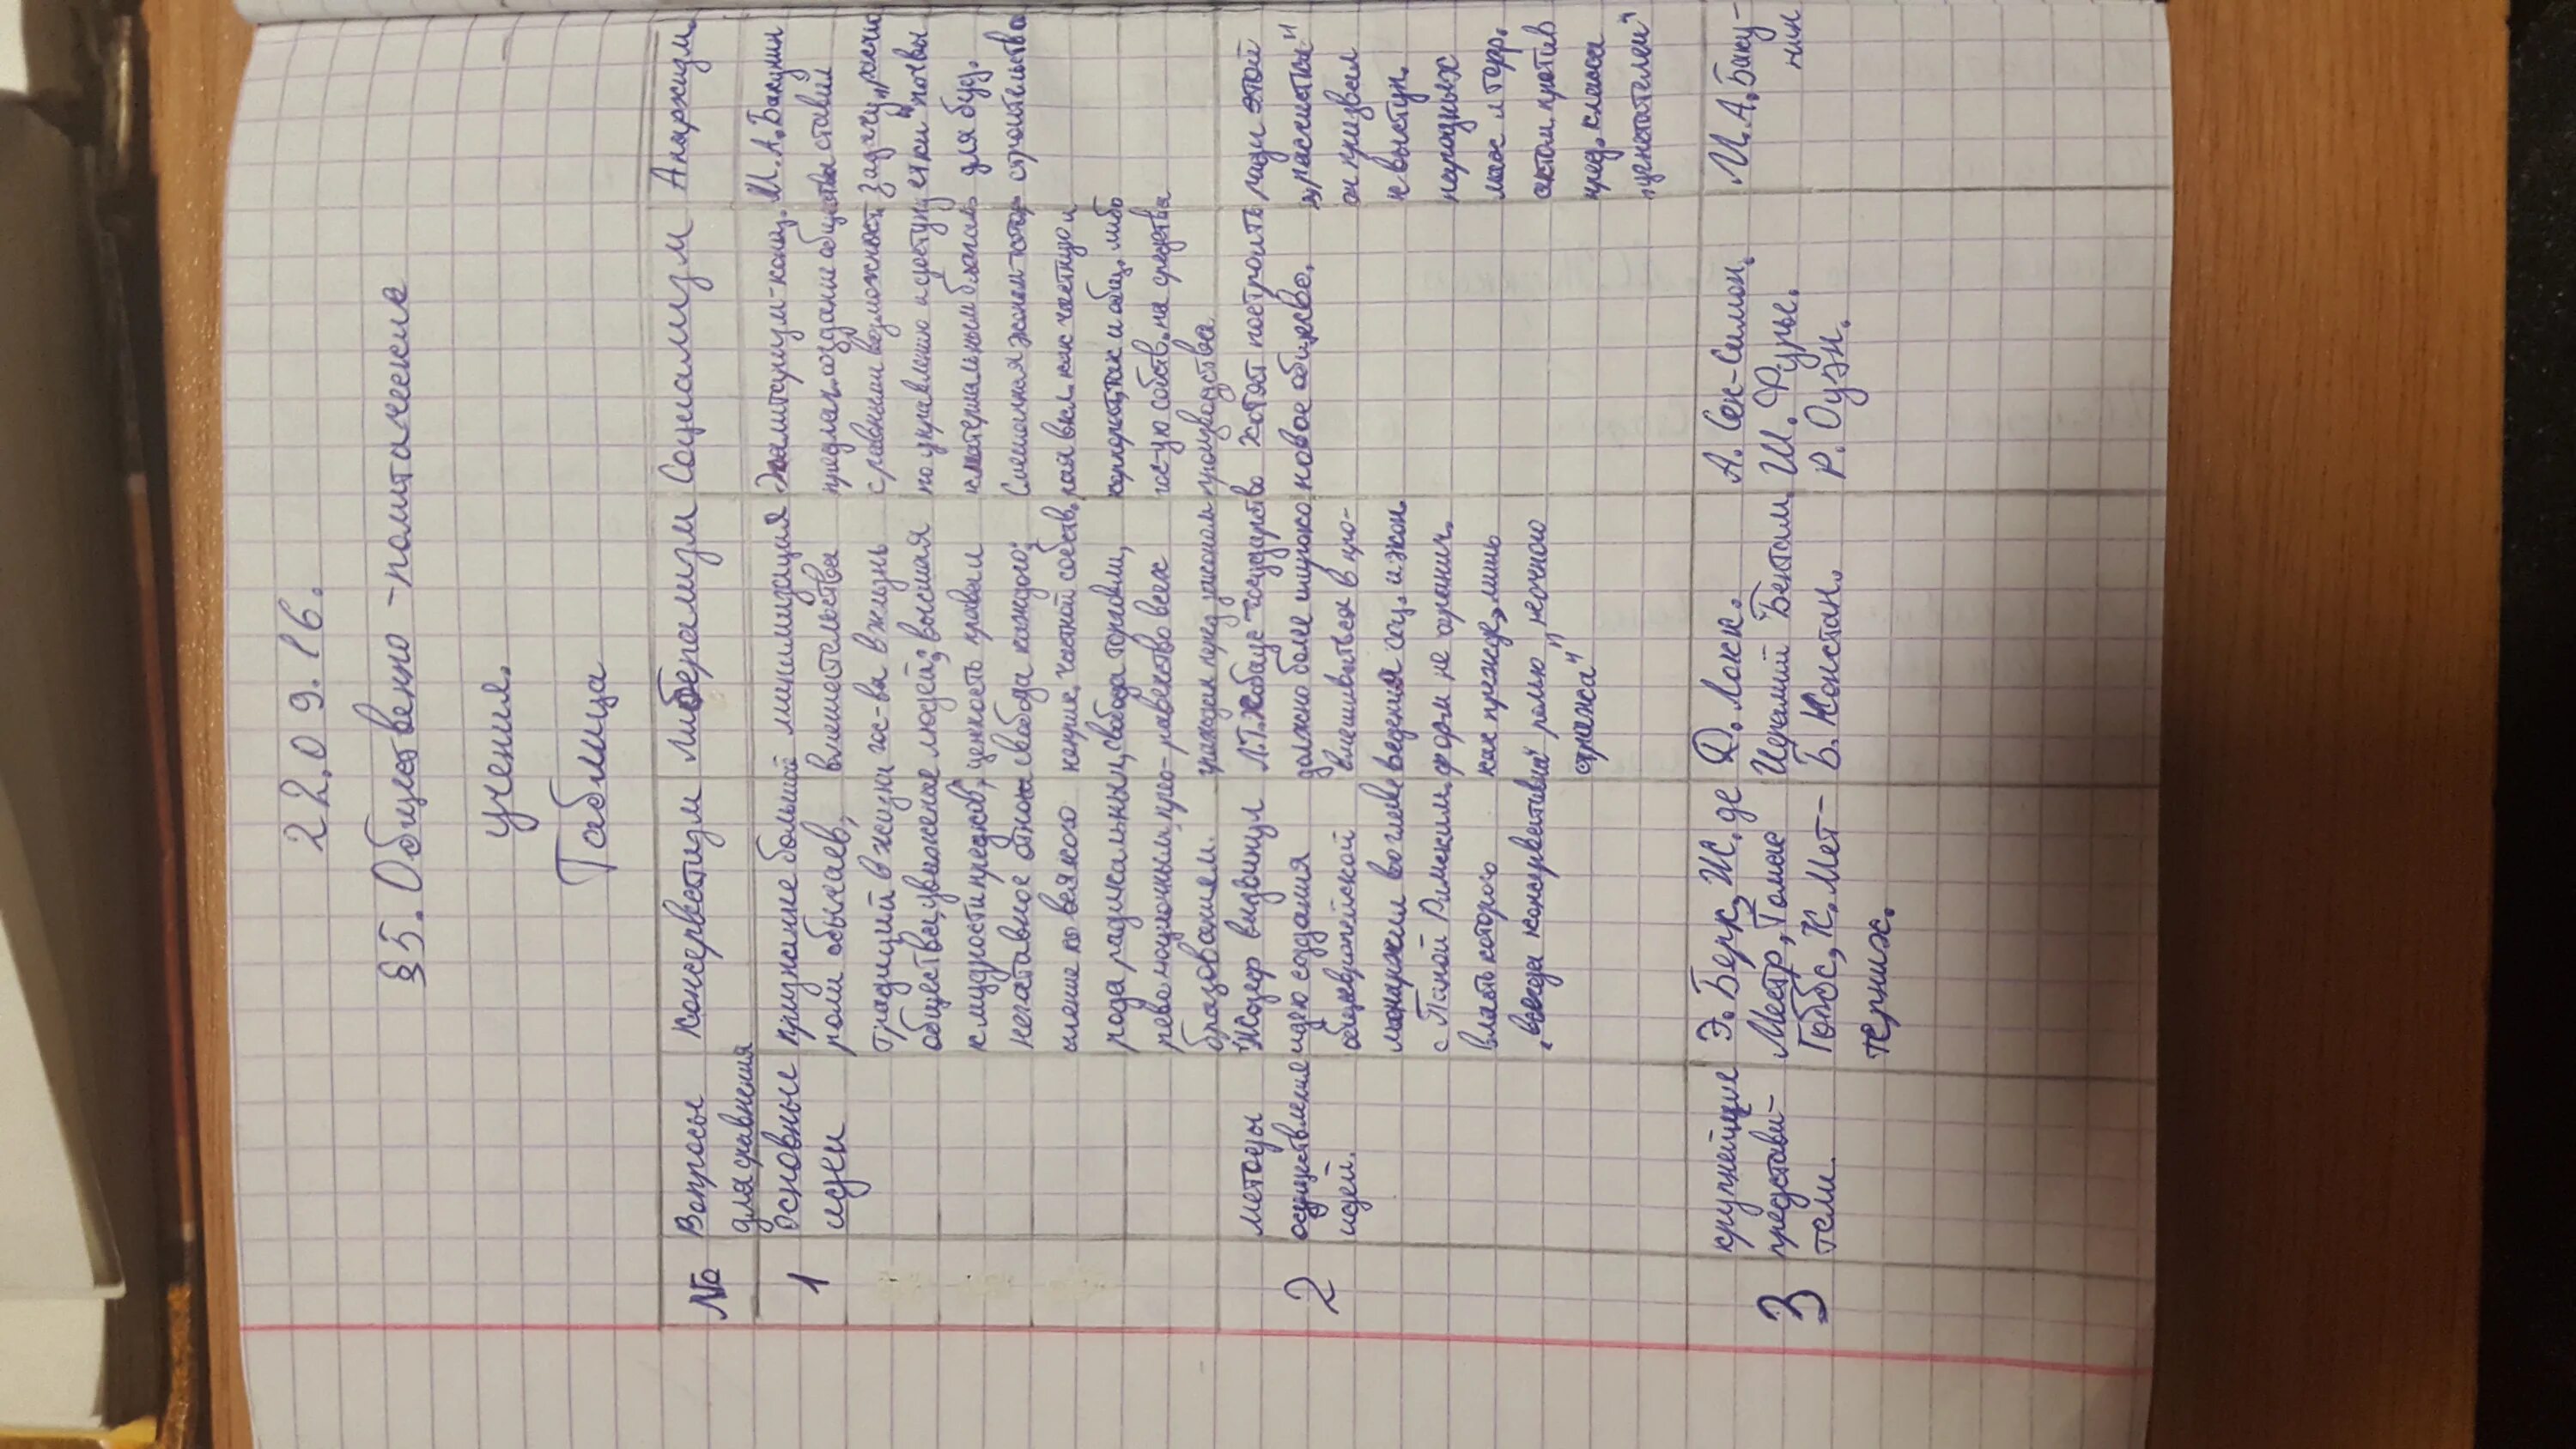 22.09.16.
§5. Общественно-политические
учения.
Таблица
№
Вопросы
для сравнения
Консерватизм
Либерализм
Социализм
Анархизм.
1
Основные
идеи
признание большой
роли обычаев,
традиций в жизни
общества, уважение
к мудрости предков,
негативное отно-
шение ко всякого
рода радикальным,
революционным, прео-
бразованиям.
минимизация
вмешательства
гос-ва в жизнь
людей; высшая
ценность правам
и свобода каждого;
частной собств.,
свобода торговли,
равенство всех
граждан перед законом
Эгалитаризм-конц.
предлаг. создание общества
с равными возможност.
по управлению и доступу
к материальным благам.
Смешанная эконом.
рая вкл. как частную и
корпорат., так и общ. либо
гос-ую собств. на средства
производства.
М.А.Бакунин
ставил
задачу „расчи
стки" почвы
для буд.
строительства
2
методы
осуществления
идей.
Жозеф выдвинул
идею создания
общеевропейской
монархии во главе
с Папой Римским,
власть которого
„всегда консервативна"
Л.Т.Хобаус-государство
должно более широко
вмешиваться в про-
ведения соц. и экон.
реформ не огранич.
как прежде, лишь
ролью "ночного
стража"
хотят построить
новое общество.
ради этой
„расчистки"
он призвал
к выступ.
народных
масс и терр.
актам против
пред. класса
„угнетателей"
3
крупнейшие
представи-
тели.
Э. Берк, Ж. де
Местр, Томас
Гоббс, К. Мет-
терних.
Д. Локк.
Иеремий Бентам
Б. Констан.
А. Сен-Симон.
Ш. Фурье.
Р. Оуэн.
М.А.Баку-
нин